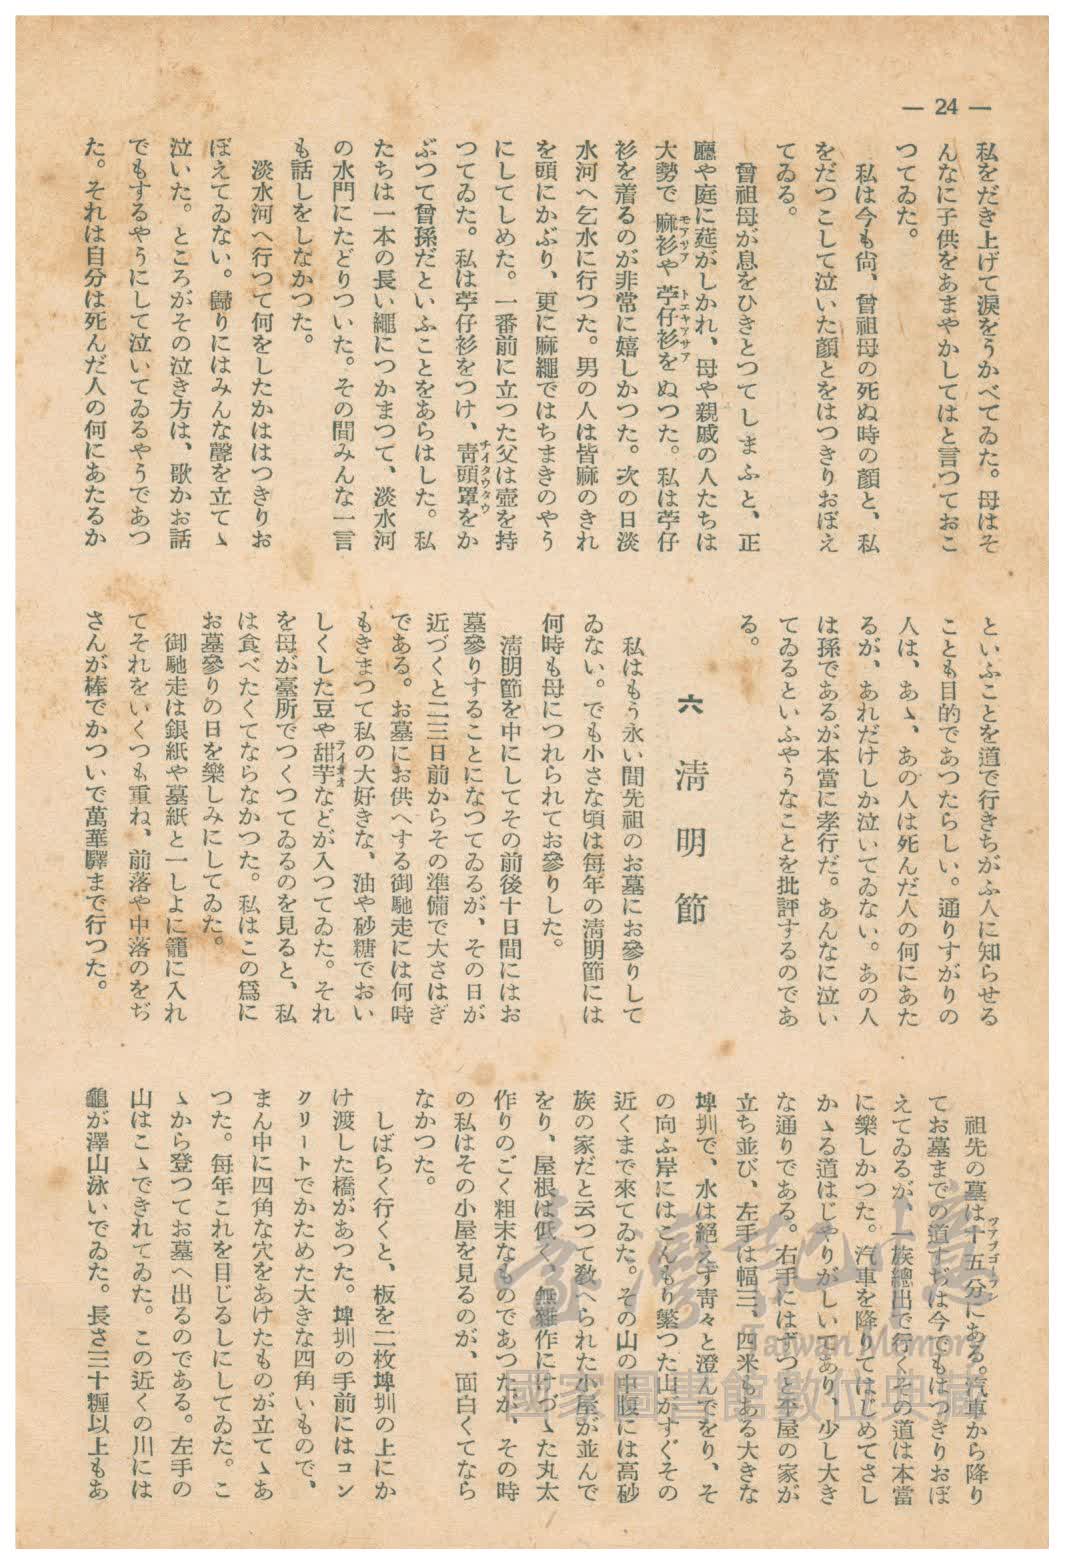 — 24 —
私をだき上げて涙をうかべてゐた。母はそ
んなに子供をあまやかしてはと言つておこ
つてゐた。
私は今も尙、曾祖母の死ぬ時の顏と、私
をだつこして泣いた顏とをはつきりおぼえ
てゐる。
曾祖母が息をひきとつてしまふと、正
廳や庭に莚がしかれ、母や親戚の人たちは
大勢で麻衫や苧仔衫をぬつた。私は苧仔
モアサア
トエヤアサア
衫を着るのが非常に嬉しかつた。次の日淡
水河へ乞水に行つた。男の人は皆麻のきれ
を頭にかぶり、更に麻繩ではちまきのやう
にしてしめた。一番前に立つた父は壺を持
つてゐた。私は苧仔衫をつけ、靑頭罩をか
チイタウタウ
ぶつて曾孫だといふことをあらはした。私
たちは一本の長い繩につかまつて、淡水河
の水門にたどりついた。その間みんな一言
も話しをしなかつた。
淡水河へ行つて何をしたかははつきりお
ぼえてゐない。歸りにはみんな聲を立てゝ
泣いた。ところがその泣き方は、歌かお話
でもするやうにして泣いてゐるやうであつ
た。それは自分は死んだ人の何にあたるか
といふことを道で行きちがふ人に知らせる
ことも目的であつたらしい。通りすがりの
人は、あゝ、あの人は死んだ人の何にあた
るが、あれだけしか泣いてゐない。あの人
は孫であるが本當に孝行だ。あんなに泣い
てゐるといふやうなことを批評するのであ
る。
六 淸明節
私はもう永い間先祖のお墓にお參りして
ゐない。でも小さな頃は每年の淸明節には
何時も母につれられてお參りした。
淸明節を中にしてその前後十日間にはお
墓參りすることになつてゐるが、その日が
近づくと二三日前からその準備で大さはぎ
である。お墓にお供へする御馳走には何時
もきまつて私の大好きな、油や砂糖でおい
しくした豆や甜芋などが入つてゐた。それ
を母が臺所でつくつてゐるのを見ると、私
は食べたくてならなかつた。私はこの爲に
お墓參りの日を樂しみにしてゐた。
御馳走は銀紙や墓紙と一しよに籠に入れ
てそれをいくつも重ね、前落や中落のをぢ
さんが棒でかついで萬華驛まで行つた。
祖先の墓は十五分にある。汽車から降り
ツアプゴーフン
てお墓までの道すぢは今でもはつきりおぼ
えてゐるが、一族總出で行くその道は本當
に樂しかつた。汽車を降りてはじめてさし
かゝる道はじやりがしいてあり、少し大き
な通りである。右手にはずつと平屋の家が
立ち並び、左手は幅三、四米もある大きな
埤圳で、水は絕えず靑々と澄んでをり、そ
の向ふ岸にはこんもり繁つた山がすぐその
近くまで來てゐた。その山の中腹には高砂
族の家だと云つて敎へられた小屋が並んで
をり、屋根は低く、無雜作にけづゝた丸太
作りのごく粗末なものであつたが、その時
の私はその小屋を見るのが、面白くてなら
なかつた。
しばらく行くと、板を二枚埤圳の上にか
け渡した橋があつた。埤圳の手前にはコン
クリートでかためた大きな四角いもので、
まん中に四角な穴をあけたものが立てゝあ
つた。每年これを目じるしにしてゐた。こ
ゝから登つてお墓へ出るのである。左手の
山はこゝできれてゐた。この近くの川には
龜が澤山泳いでゐた。長さ三十糎以上もあ
臺灣記憶
Taiwan Memory
國家圖書館數位典藏